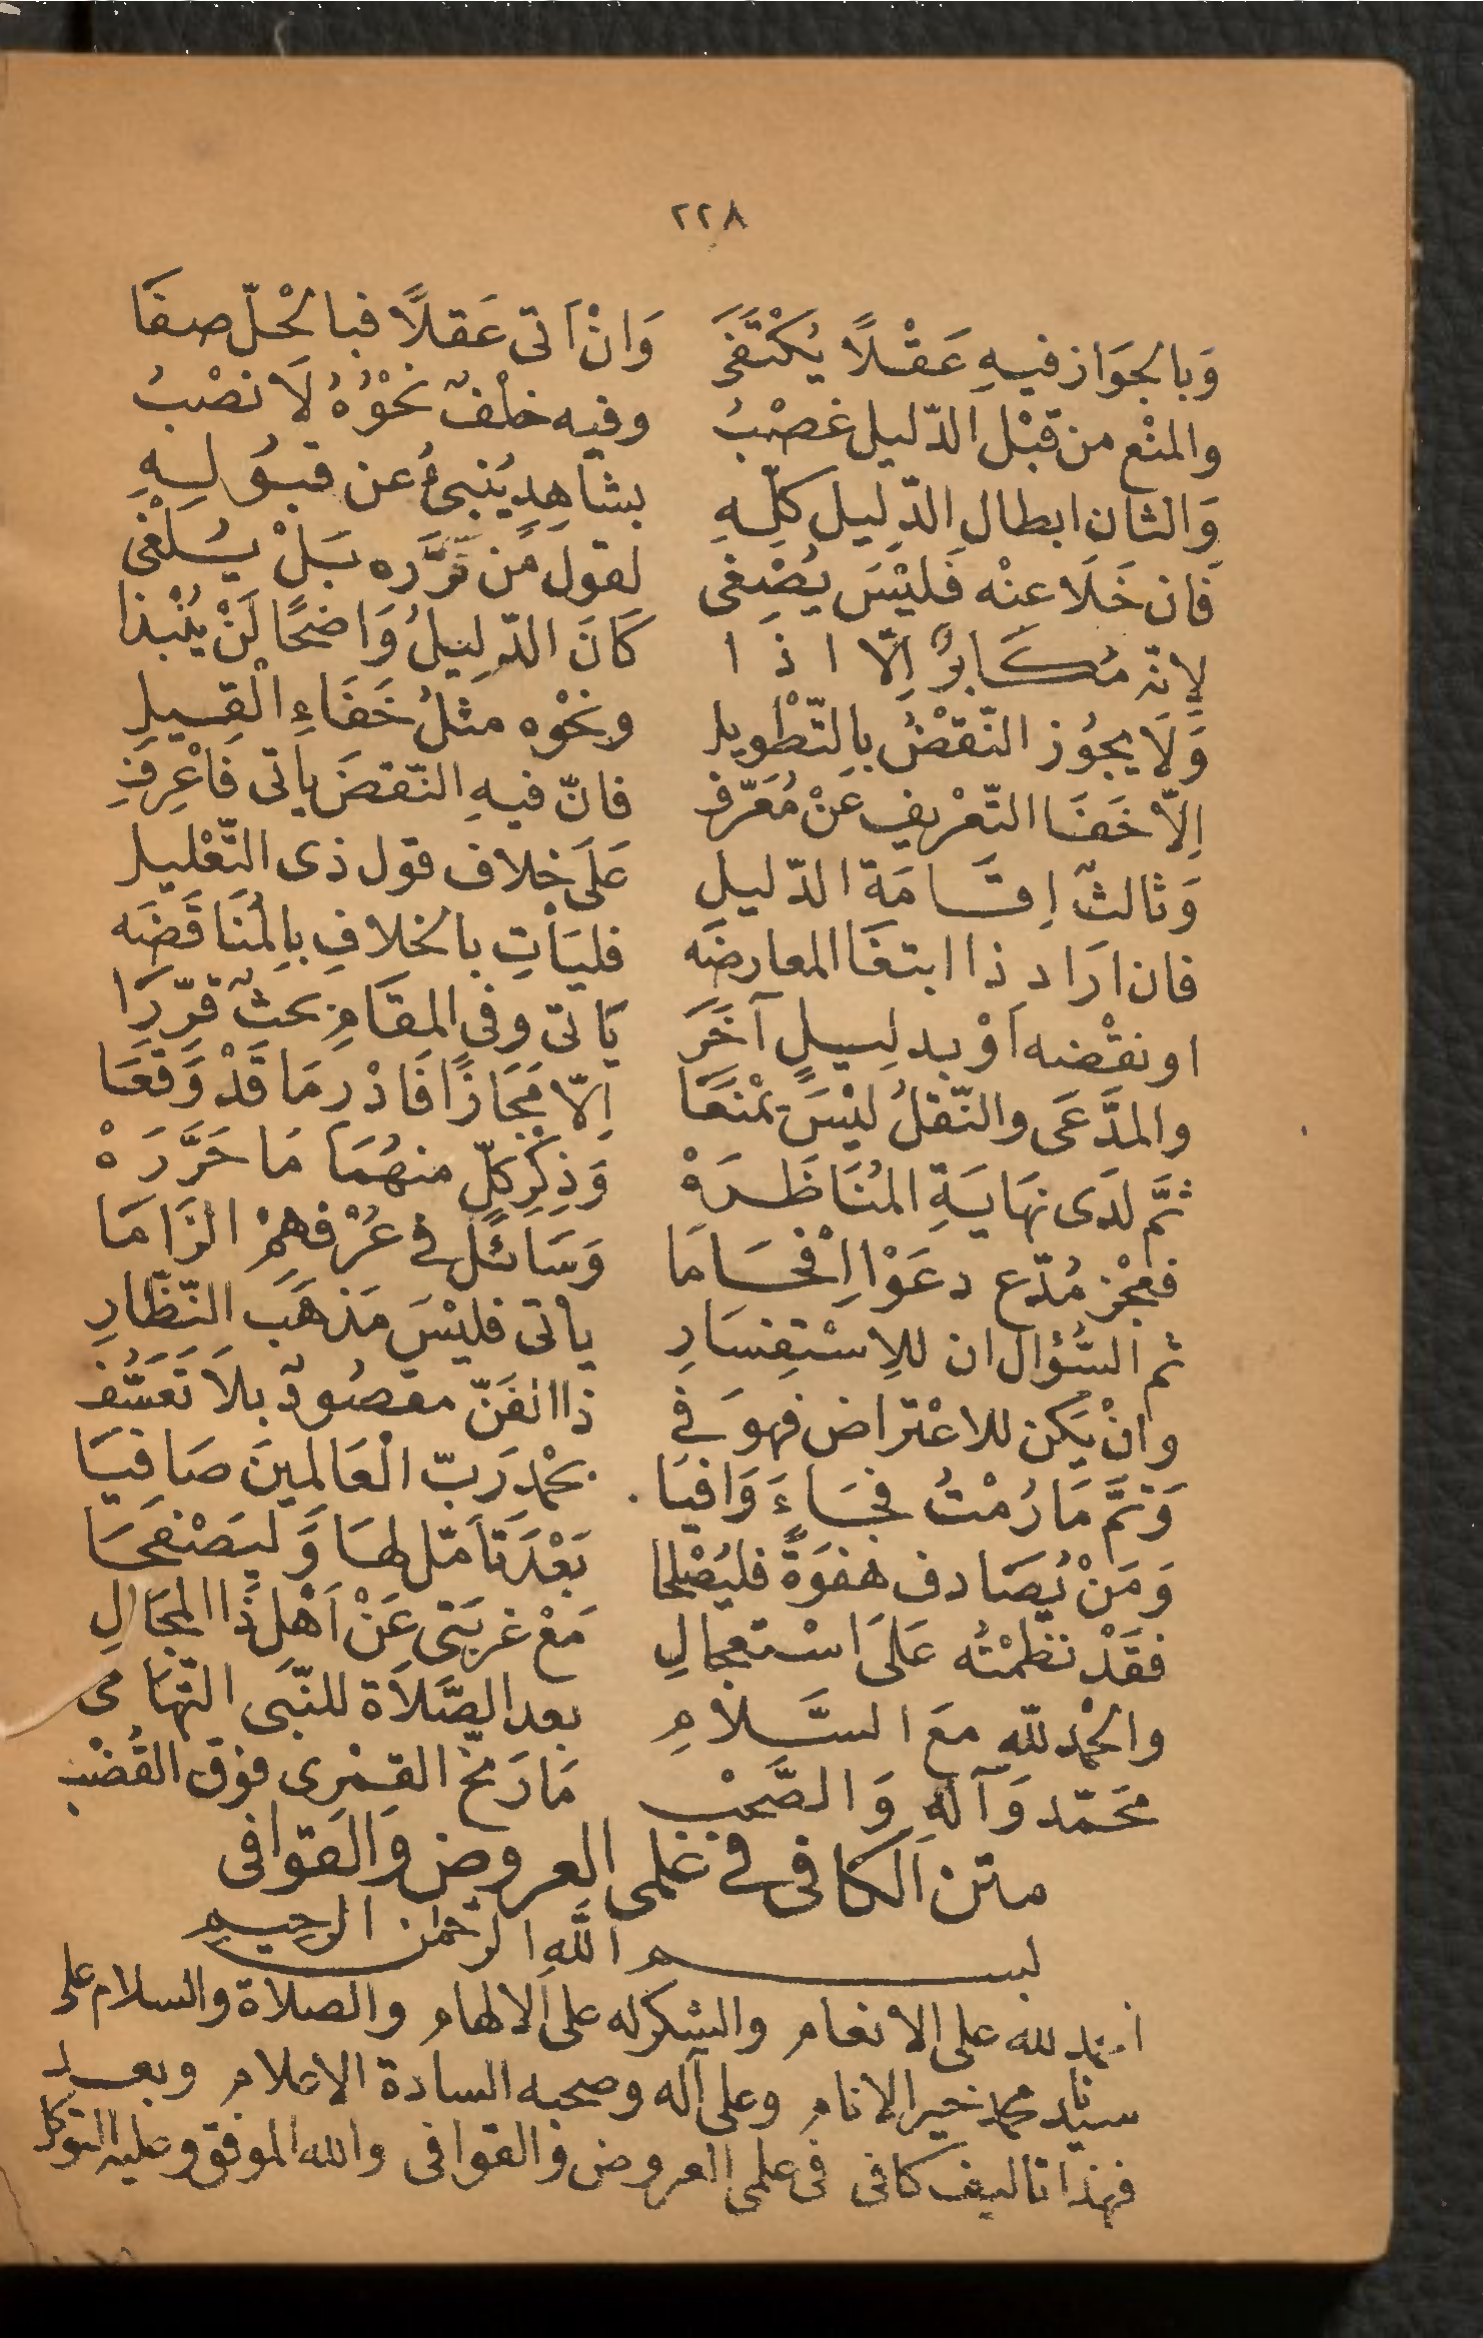 ٢٢٨
وَبالجوَاز فيهِ عَقْلًا يُكْتَفَى وَانْ اَتى عَقلًا فبالحْلّ صفَا
والمنْع من قبْل الدّليل غصْبُ وفيه خلْفٌ نحْوُهُ لَا نصْبُ
وَالثان ابطال الدّلِيل كلّهِ بشاهِدٍ يُنبئُ عن قبُولهِ
فَان خَلَا عنْه فَليْسَ يُصْغى لقول مَن قرَّره بَلْ يُلْغى
لِانّه مُكَابرٌ اِلّا اذَا كَانَ الدّلِيلُ وَاضحًا لَنْ يُنْبذا
وَلَا يجوُز النّقضُ بالتّطْويل ونحْوه مثلُ خَفَاءِ الْقِيلِ
اِلّا خَفَا التّعْريف عَنْ مُعَرّف فانّ فيهِ النّقضَ ياتى فَاعْرِفِ
وَثالثٌ اِقَامَة الدّليلِ عَلَى خلاف قول ذى التّعْليل
فان ارَاد ذا ابتغَا المعارضَه فليَأتِ بالخلافِ بالمُنَاقَضَه
او نقْضه اَوْ بدلِيلٍ آخَرَ يَاتى وفى المقَامِ بحثٌ قرّرَا
والمدَّعَى والنّقلُ ليْسَ يمْنَعَا اِلّا مجَازًا فَادْر مَا قَدْ وَقعَا
ثمَّ لدَى نهَايَةِ المُنَاظَرَهْ وَذِكْرِ كلّ منهُمَا مَا حَرَّرَهْ
فعجْز مُدّع دعَوْا اِفْحَامَا وَسَائلٍ فى عُرْفهِمْ الزَامَا
ثم السُّؤال ان للِاسْتِفسَارِ يأتى فليْسَ مَذهَبَ النّظّارِ
وانْ يَكن للاعْتراض فهوَ فى ذا الفَنّ مقصُودٌ بلَا تَعَسُّف
وَتمَّ مَا رُمْتُ فجَاءَ وَافيَا بحْمد رَبّ الْعَالمِينَ صَافيَا
وَمَنْ يُصَادف هفوَةً فليُصْلحا بَعْدَ تأمّل لها وَليَصْفحَا
فقَدْ نظمْتُه عَلَى اسْتعجالِ مَعْ غربَتى عَنْ اَهْل ذَا المجَالِ
والحْمد للّهِ معَ السَّلامِ بعد الصَّلَاة للنّبَى التّهَامى
محَمّد وَآلهِ وَالصَّحْب مَا رَنحّ القمْرى فوْق القُضْب
متن الكافى فى علمى العروض وَالقوافى
بسم اللّهِ الرحمٰن الرحيم
الحمد لله على الانعام والشكر له على الالهام والصلاة والسلام على
سيدنا محمد خير الانام وعلى آله وصحبه السادة الاعلام وبعد
فهذا تاليف كافى فى علمى العروض والقوافى والله الموفق وعليه التوكل